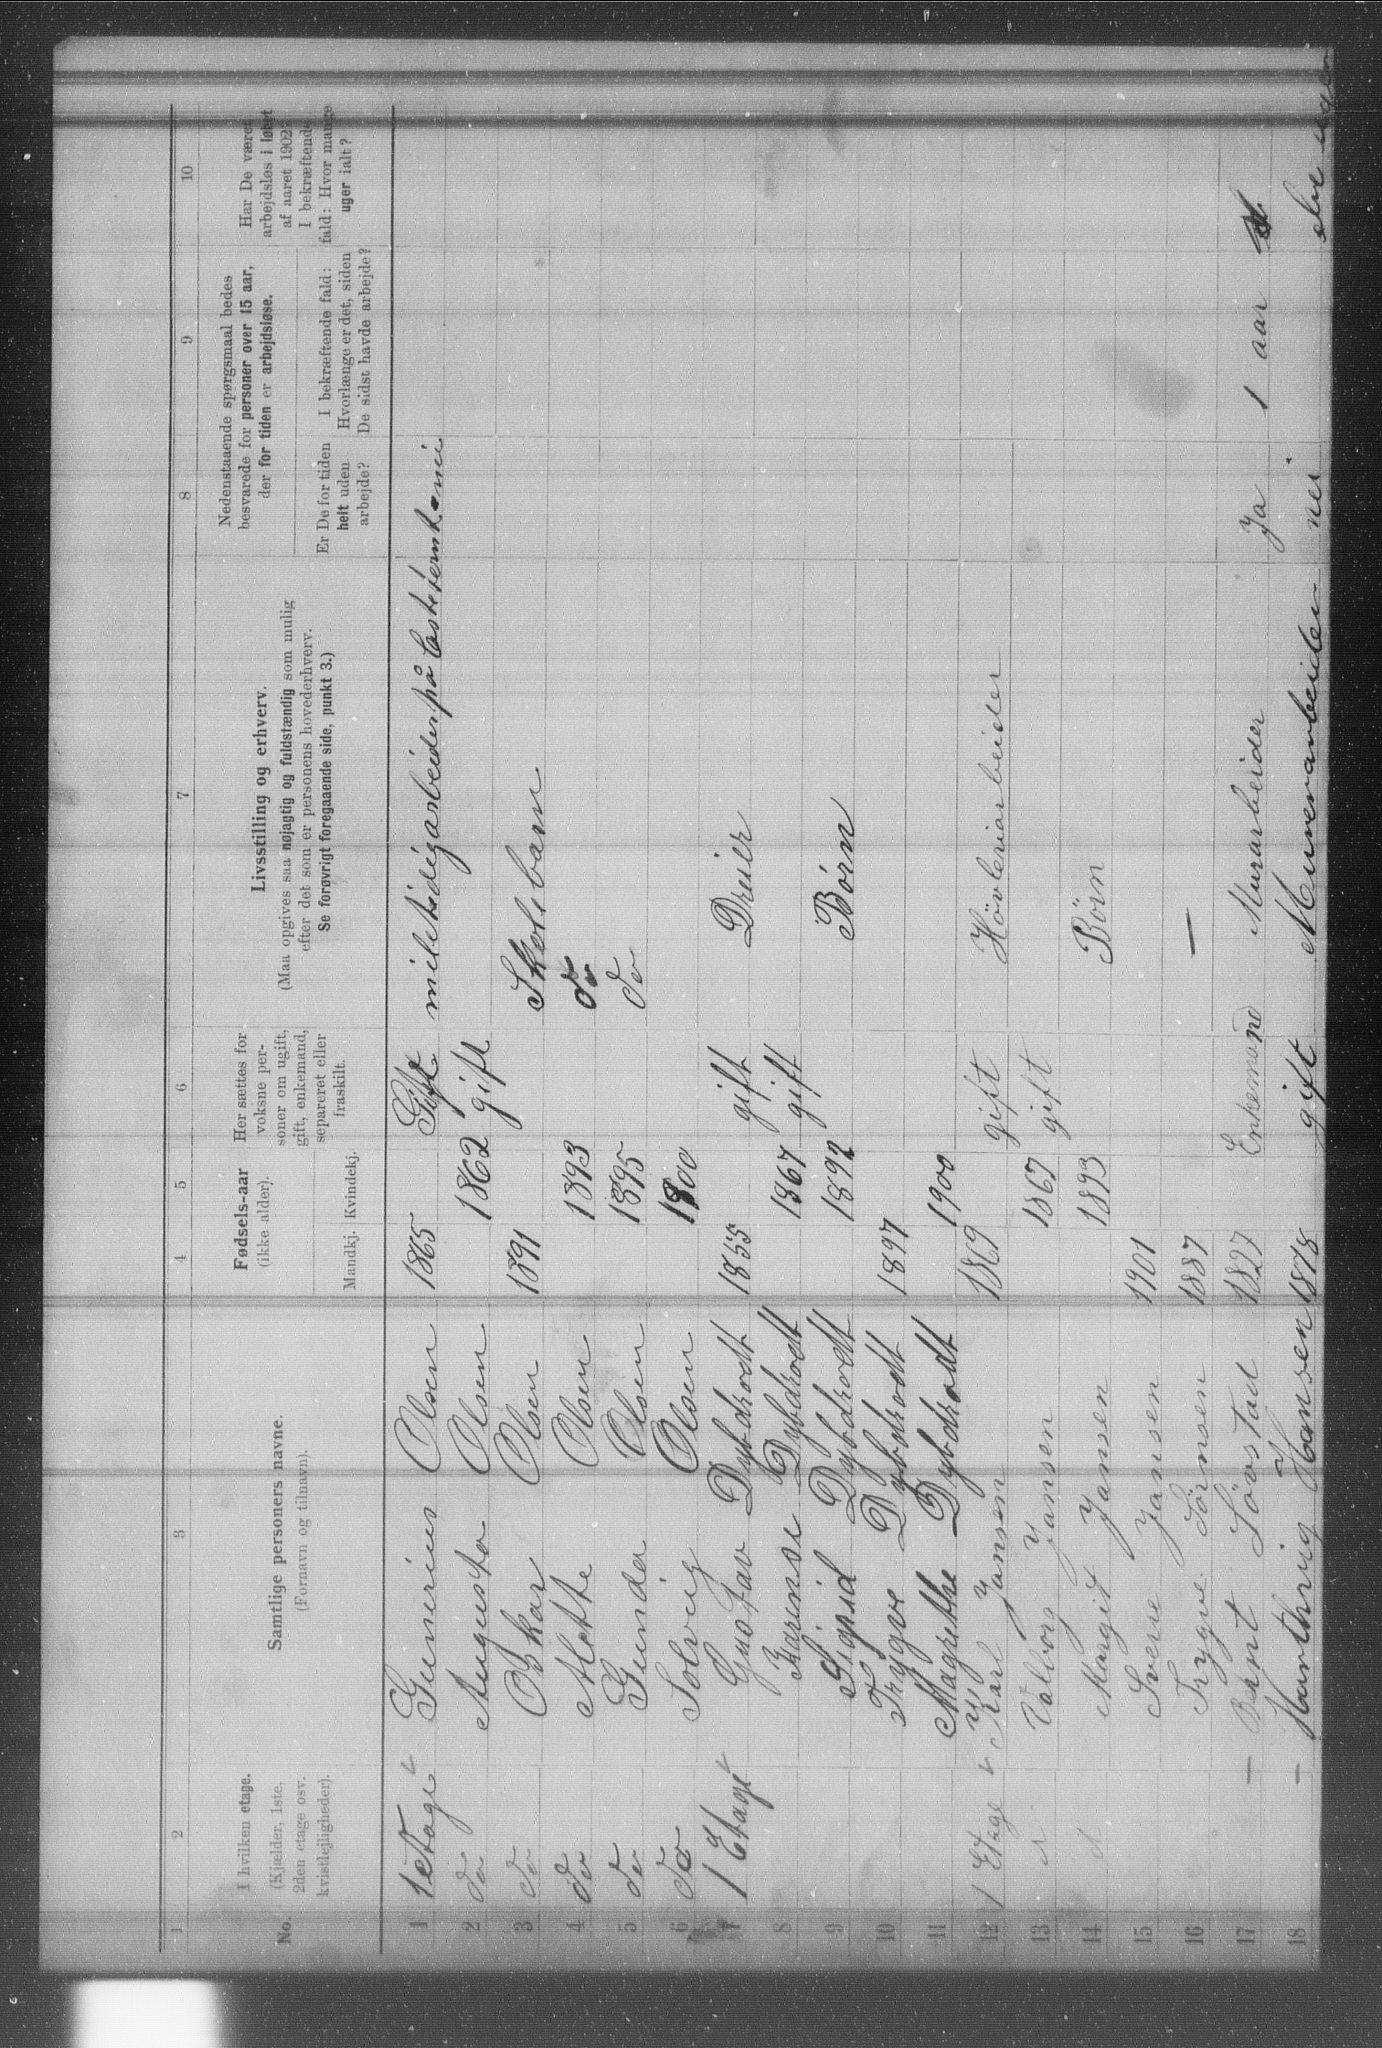 1 2 3 4 5 6 7 8 9 10
No.
I hvilken etage.
(Kjælder, 1ste,
2den etage osv.
kvistlejligheder).
Samtlige personers navne.
(Fornavn og tilnavn).
Fødsels-aar
(ikke alder).
Mandkj. Kvindekj.
Her sættes for
voksne per-
soner om ugift,
gift, enkemand,
separeret eller
fraskilt.
Livsstilling og erhverv.
(Maa opgives saa nøjagtig og fuldstændig som mulig
efter det som er personens hovederhverv.
Se forøvrigt foregaaende side, punkt 3.)
Nedenstaaende spørgsmaal bedes
besvarede for personer over 15 aar,
der for tiden er arbejdsløse.
Er De for tiden
helt uden
arbejde?
I bekræftende fald:
Hvorlænge er det, siden
De sidst havde arbejde?
Har De været
arbejdsløs i løbet
af aaret 1902?
I bekræftende
fald: Hvor mange
uger ialt?
1 1 Etage Gunerius Olsen 1865 Gift
2 do Augusta Olsen 1862 gift
3 do Oskar Olsen 1891 Skolebarn
4 do Alette Olsen 1893 do
5 do Gunda Olsen 1895 do
6 do Solveig Olsen 1900
7 1 Etage Gustav Dybdrodt 1855 gift
8 Karense Dybdrodt 1867 gift
9 Sigrid Dybdrodt 1892 Børn
10 Trygve Dybdrodt 1897
11 Magrethe Dybdrodt 1900
12 1 Etage Karl Jansen 1869 gift Høvleriarbeider
13 Valborg Jansen 1867 gift
14 Margit Jansen 1893 Børn
15 Sverre Jansen 1901
16 Trygve Sørnsen 1887 —
17 — Bernt Løvstad 1827 Enkemand Murarbeider Ja 1 aar
18 — Hansen 1878 gift Murerarbeider nei